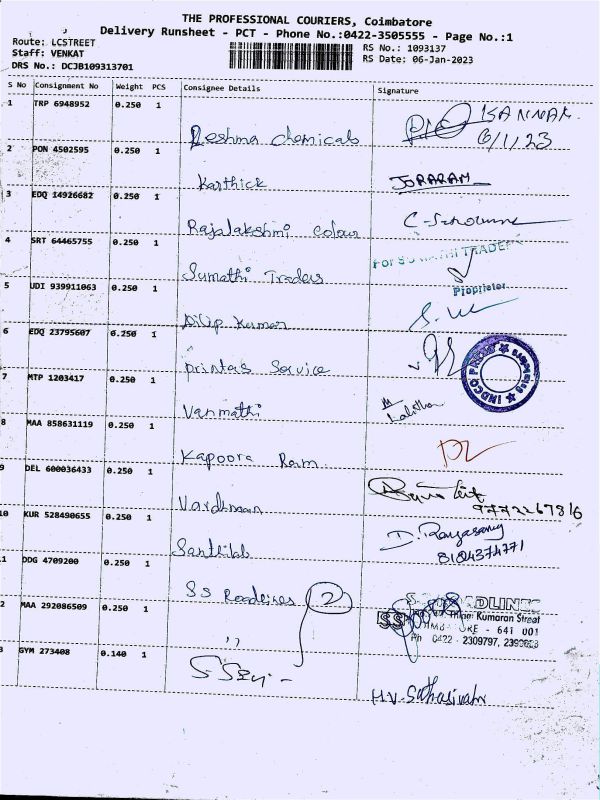 THE PROFESSIONAL COURIERS, Coimbatore
Delivery Runsheet - PCT - Phone No.:0422-3505555 - Page No.:1
Route: LCSTREET
RS No.: 1093137
Staff: VENKAT
RS Date: 06-Jan-2023
DRS No.: DCJB109313701
S No Consignment No Weight PCS Consignee Details Signature
1 TRP 6948952 0.250 1 Reshma chemicals KANNAN
6/1/23
2 PON 4502595 0.250 1 Karthick JORARAM
3 EDQ 14926682 0.250 1 Rajalakshmi colour
4 SRT 64465755 0.250 1 Sumathi Traders
Proprietor
5 UDI 939911063 0.250 1 Dilip Kumar
6 EDQ 23795607 0.250 1 printers Service
7 MTP 1203417 0.250 1 Vanmathi Lalitha
8 MAA 858631119 0.250 1 Kapoora Ram
9 DEL 600036433 0.250 1 Vardhman
10 KUR 528490655 0.250 1 D. Rangasamy
8184374771
1 DDG 4709200 0.250 1 SS Roadlines 2
2 MAA 292086509 0.250 1 ,, SS Kumaran Street
- 641 001
Ph 0422 - 2309797,
3 GYM 273408 0.140 1 H.V. Sathasivam